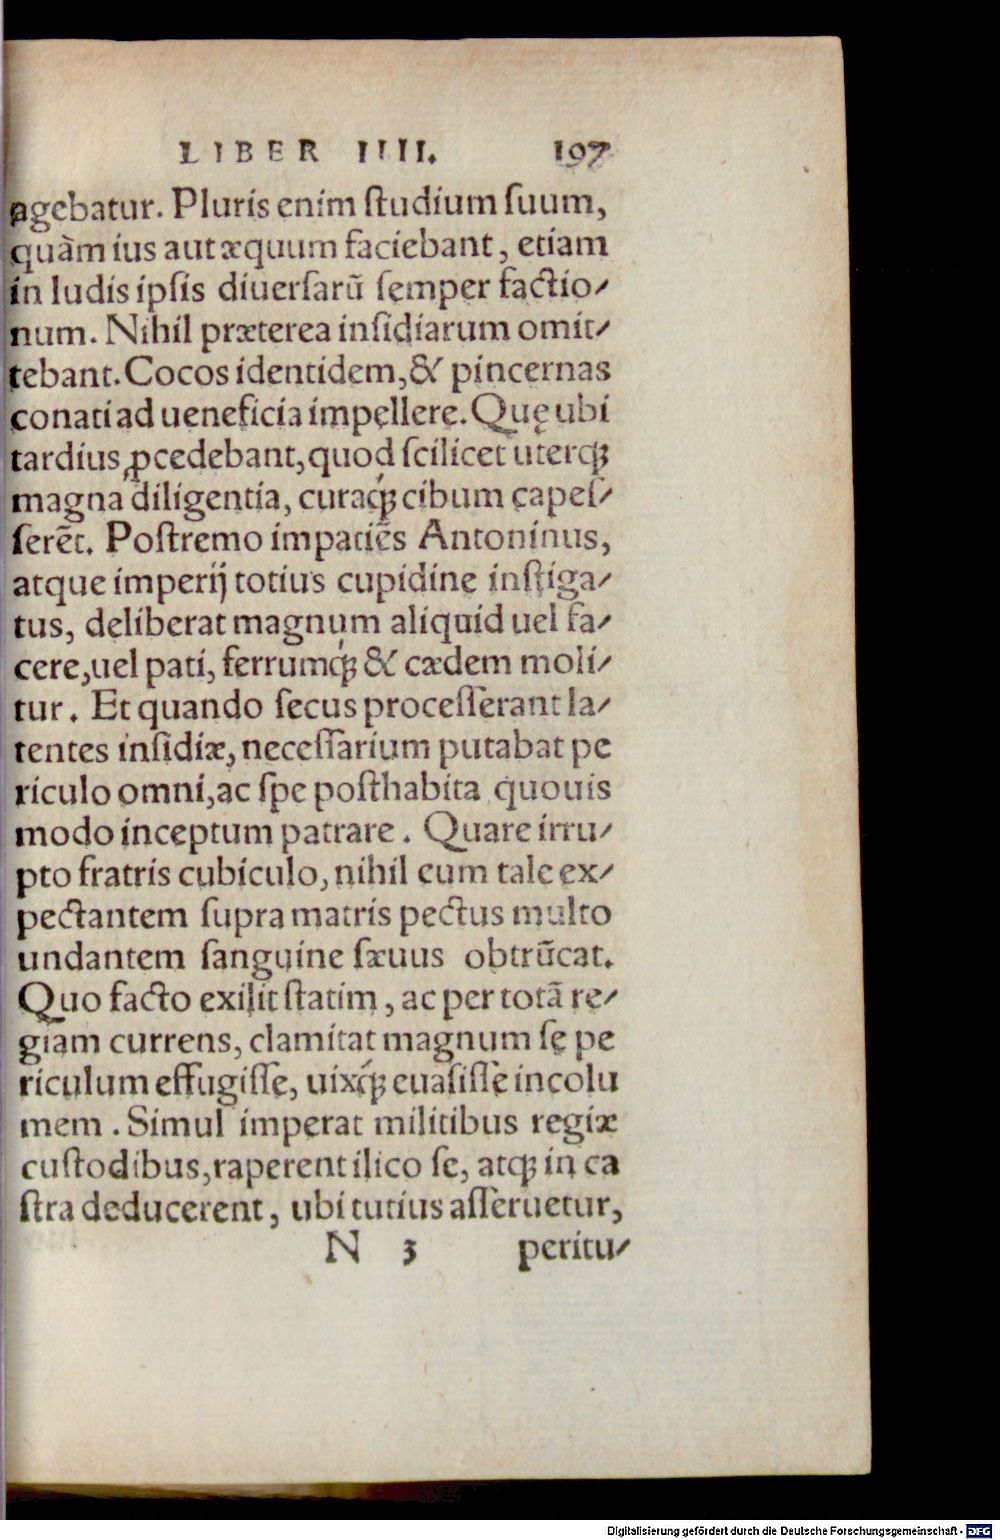 LIBER IIII. 197
agebatur. Pluris enim ſtudium ſuum,
quàm ius aut æquum faciebant, etiam
in ludis ipſis diuerſarũ ſemper factio-
num. Nihil præterea inſidiarum omit-
tebant. Cocos identidem, & pincernas
conati ad ueneficia impellere. Quę ubi
tardius ꝓcedebant, quod ſcilicet uterqꝫ
magna diligentia, curaqꝫ cibum capeſ-
ſerẽt. Poſtremo impatiẽs Antoninus,
atque imperij totius cupidine inſtiga-
tus, deliberat magnum aliquid uel fa-
cere, uel pati, ferrumqꝫ & cædem moli-
tur. Et quando ſecus proceſſerant la-
tentes inſidiæ, neceſſarium putabat pe
riculo omni, ac ſpe poſthabita quouis
modo inceptum patrare. Quare irru-
pto fratris cubiculo, nihil cum tale ex-
pectantem ſupra matris pectus multo
undantem ſanguine ſæuus obtrũcat.
Quo facto exilit ſtatim, ac per totã re-
giam currens, clamitat magnum ſe pe
riculum effugiſſe, uixqꝫ euaſiſſe incolu
mem. Simul imperat militibus regiæ
cuſtodibus, raperent ilico ſe, atqꝫ in ca
ſtra deducerent, ubi tutius aſſeruetur,
N 3 peritu-
Digitalisierung gefördert durch die Deutsche Forschungsgemeinschaft - DFG